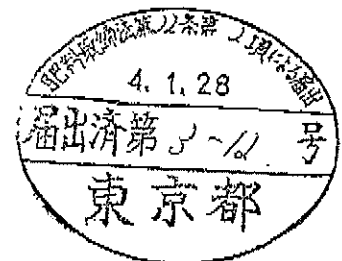 肥料取締法第22条第2項による届出
4.1.28
届出済第3~12号
東京都